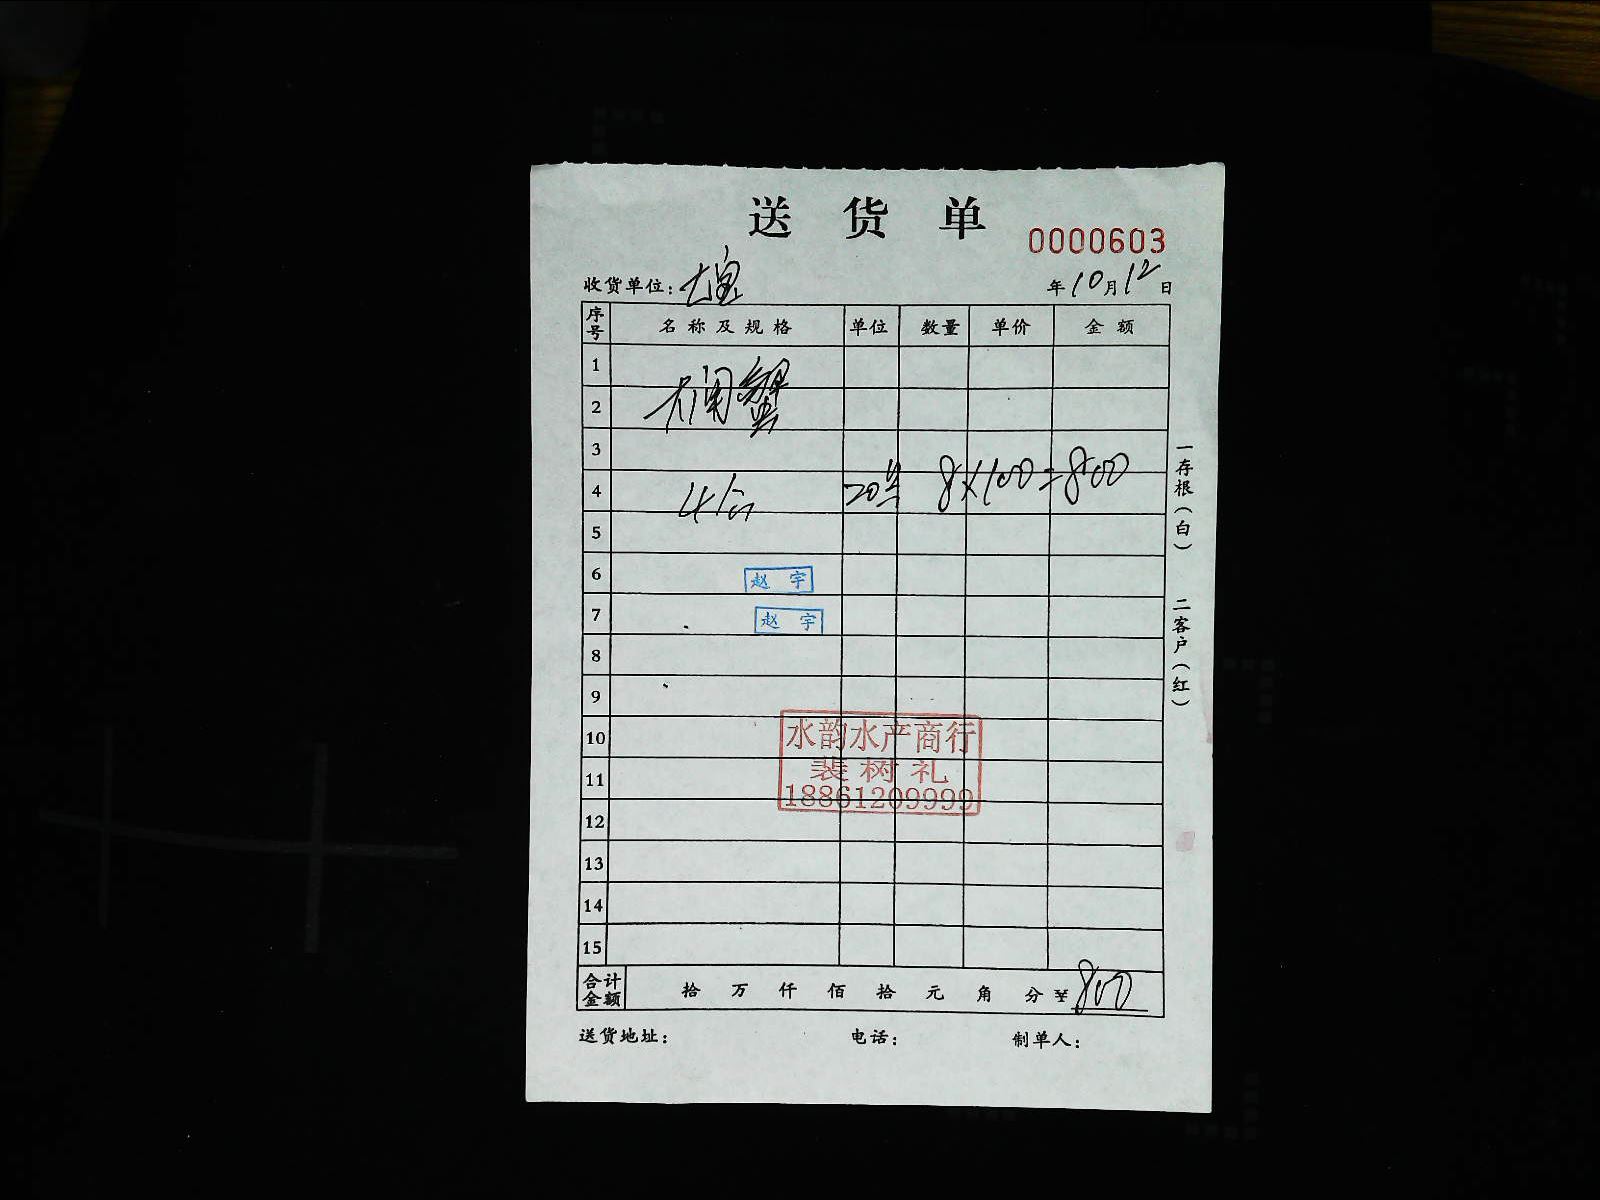 送货单
0000603
收货单位： 年10月12日
序号 名称及规格 单位 数量 单价 金额
1
大闸蟹
2
3
4 20只 8×100=800
5
6 赵宇
7 赵宇
8
9
10 水韵水产商行
11 裴树礼
18861209999
12
13
14
15
合计金额 拾 万 仟 佰 拾 元 角 分 ¥800
送货地址： 电话： 制单人：
一存根（白） 二客户（红）